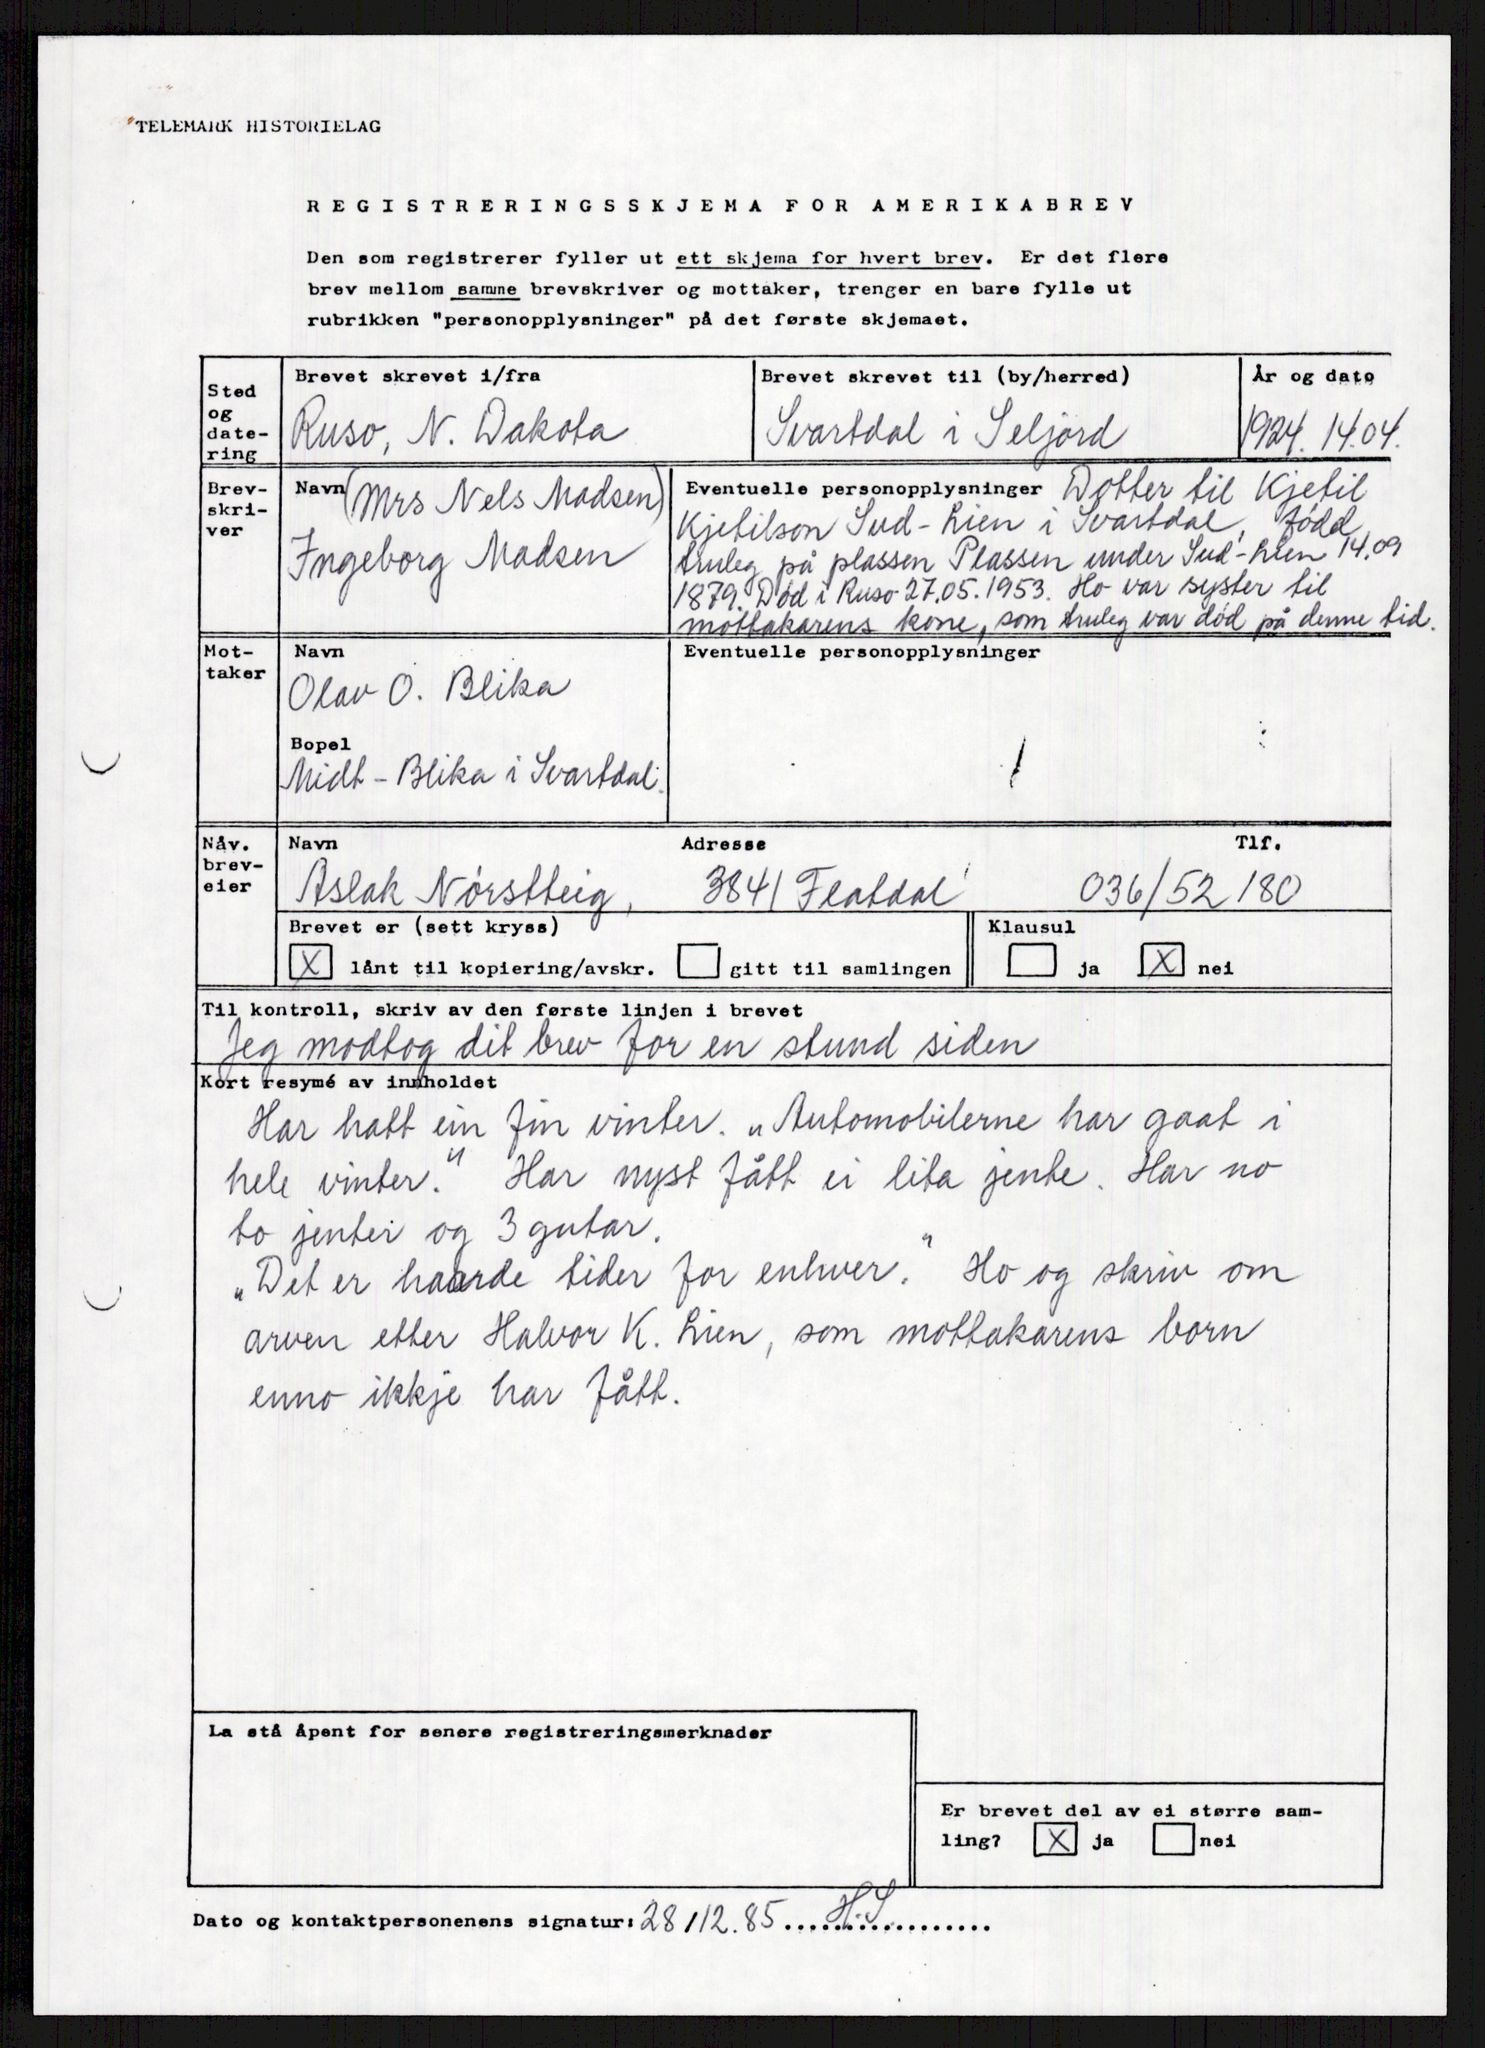 "TELEMARK HISTORIELAG
REGISTRERINGSSKJEMA FOR AMERIKABREV
Den som registrerer fyller ut ett skjema for hvert brev. Er det flere
brev mellom samme brevskriver og mottaker, trenger en bare fylle ut
rubrikken "personopplysninger" på det første skjemaet.
Sted og date-ring
Brevet skrevet i/fra
Ruso, N. Dakota
Brevet skrevet til (by/herred)
Svartdal i Seljord
År og dato
1924. 14.04.
Brev-skri-ver
Navn (Mrs Nels Madsen)
Ingeborg Madsen
Eventuelle personopplysninger Dotter til Kjetil
Kjetilson Sud-Lien i Svartdal, fødd
truleg på plassen Plassen under Sud-Lien 14.09
1879. Død i Ruso 27.05.1953. Ho var syster til
mottakarens kone, som truleg var død på denne tid.
Mot-taker
Navn
Olav O. Blika
Bopel
Midt-Blika i Svartdal.
Eventuelle personopplysninger
Nåv. brev-eier
Navn
Aslak Nørstteig,
Adresse
3841 Flatdal
Tlf.
036/52 180
Brevet er (sett kryss)
X lånt til kopiering/avskr.
gitt til samlingen
Klausul
ja
X nei
Til kontroll, skriv av den første linjen i brevet
Jeg modtog dit brev for en stund siden
Kort resymé av innholdet
Har hatt ein fin vinter. "Automobilerne har gaat i
hele vinter." Har nyst fått ei lita jente. Har no
to jenter og 3 gutar.
"Det er haarde tider for enhver." Ho og skriv om
arven etter Halvor K. Lien, som mottakarens born
enno ikkje har fått.
La stå åpent for senere registreringsmerknader
Er brevet del av ei større sam-
ling? X ja nei
Dato og kontaktpersonenens signatur: 28/12.85 H.S.